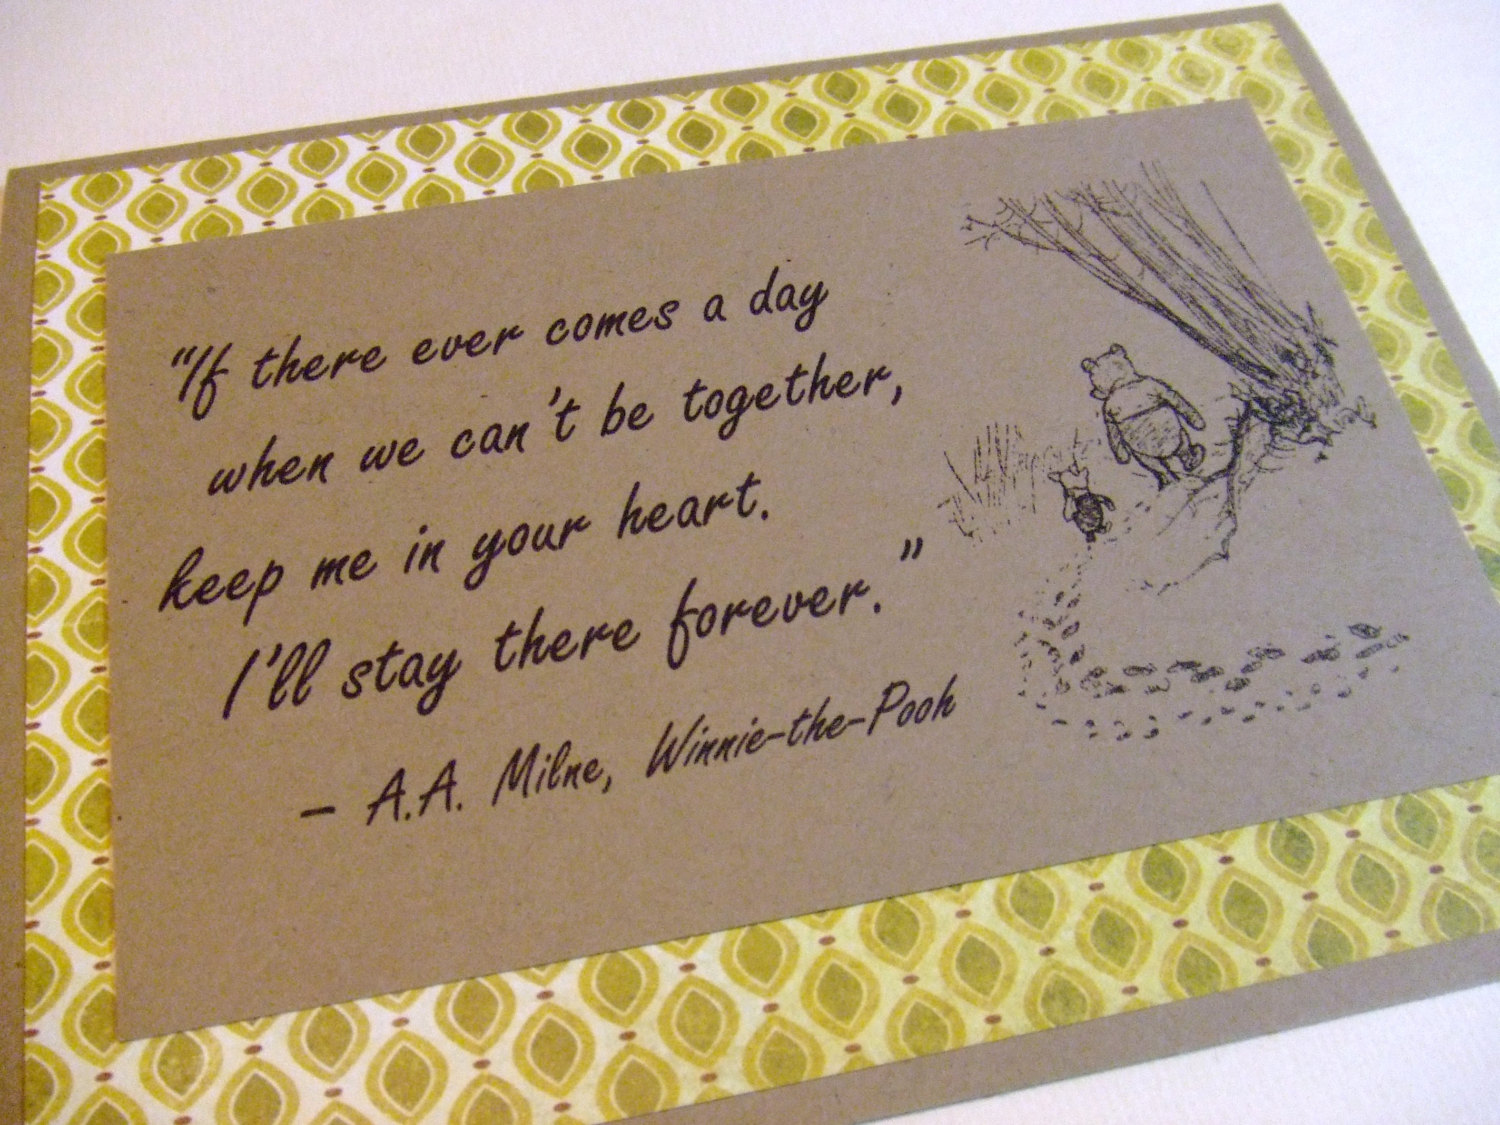 "If there ever comes a day
when we can't be together,
keep me in your heart.
I'll stay there forever."
- A.A. Milne, Winnie-the-Pooh